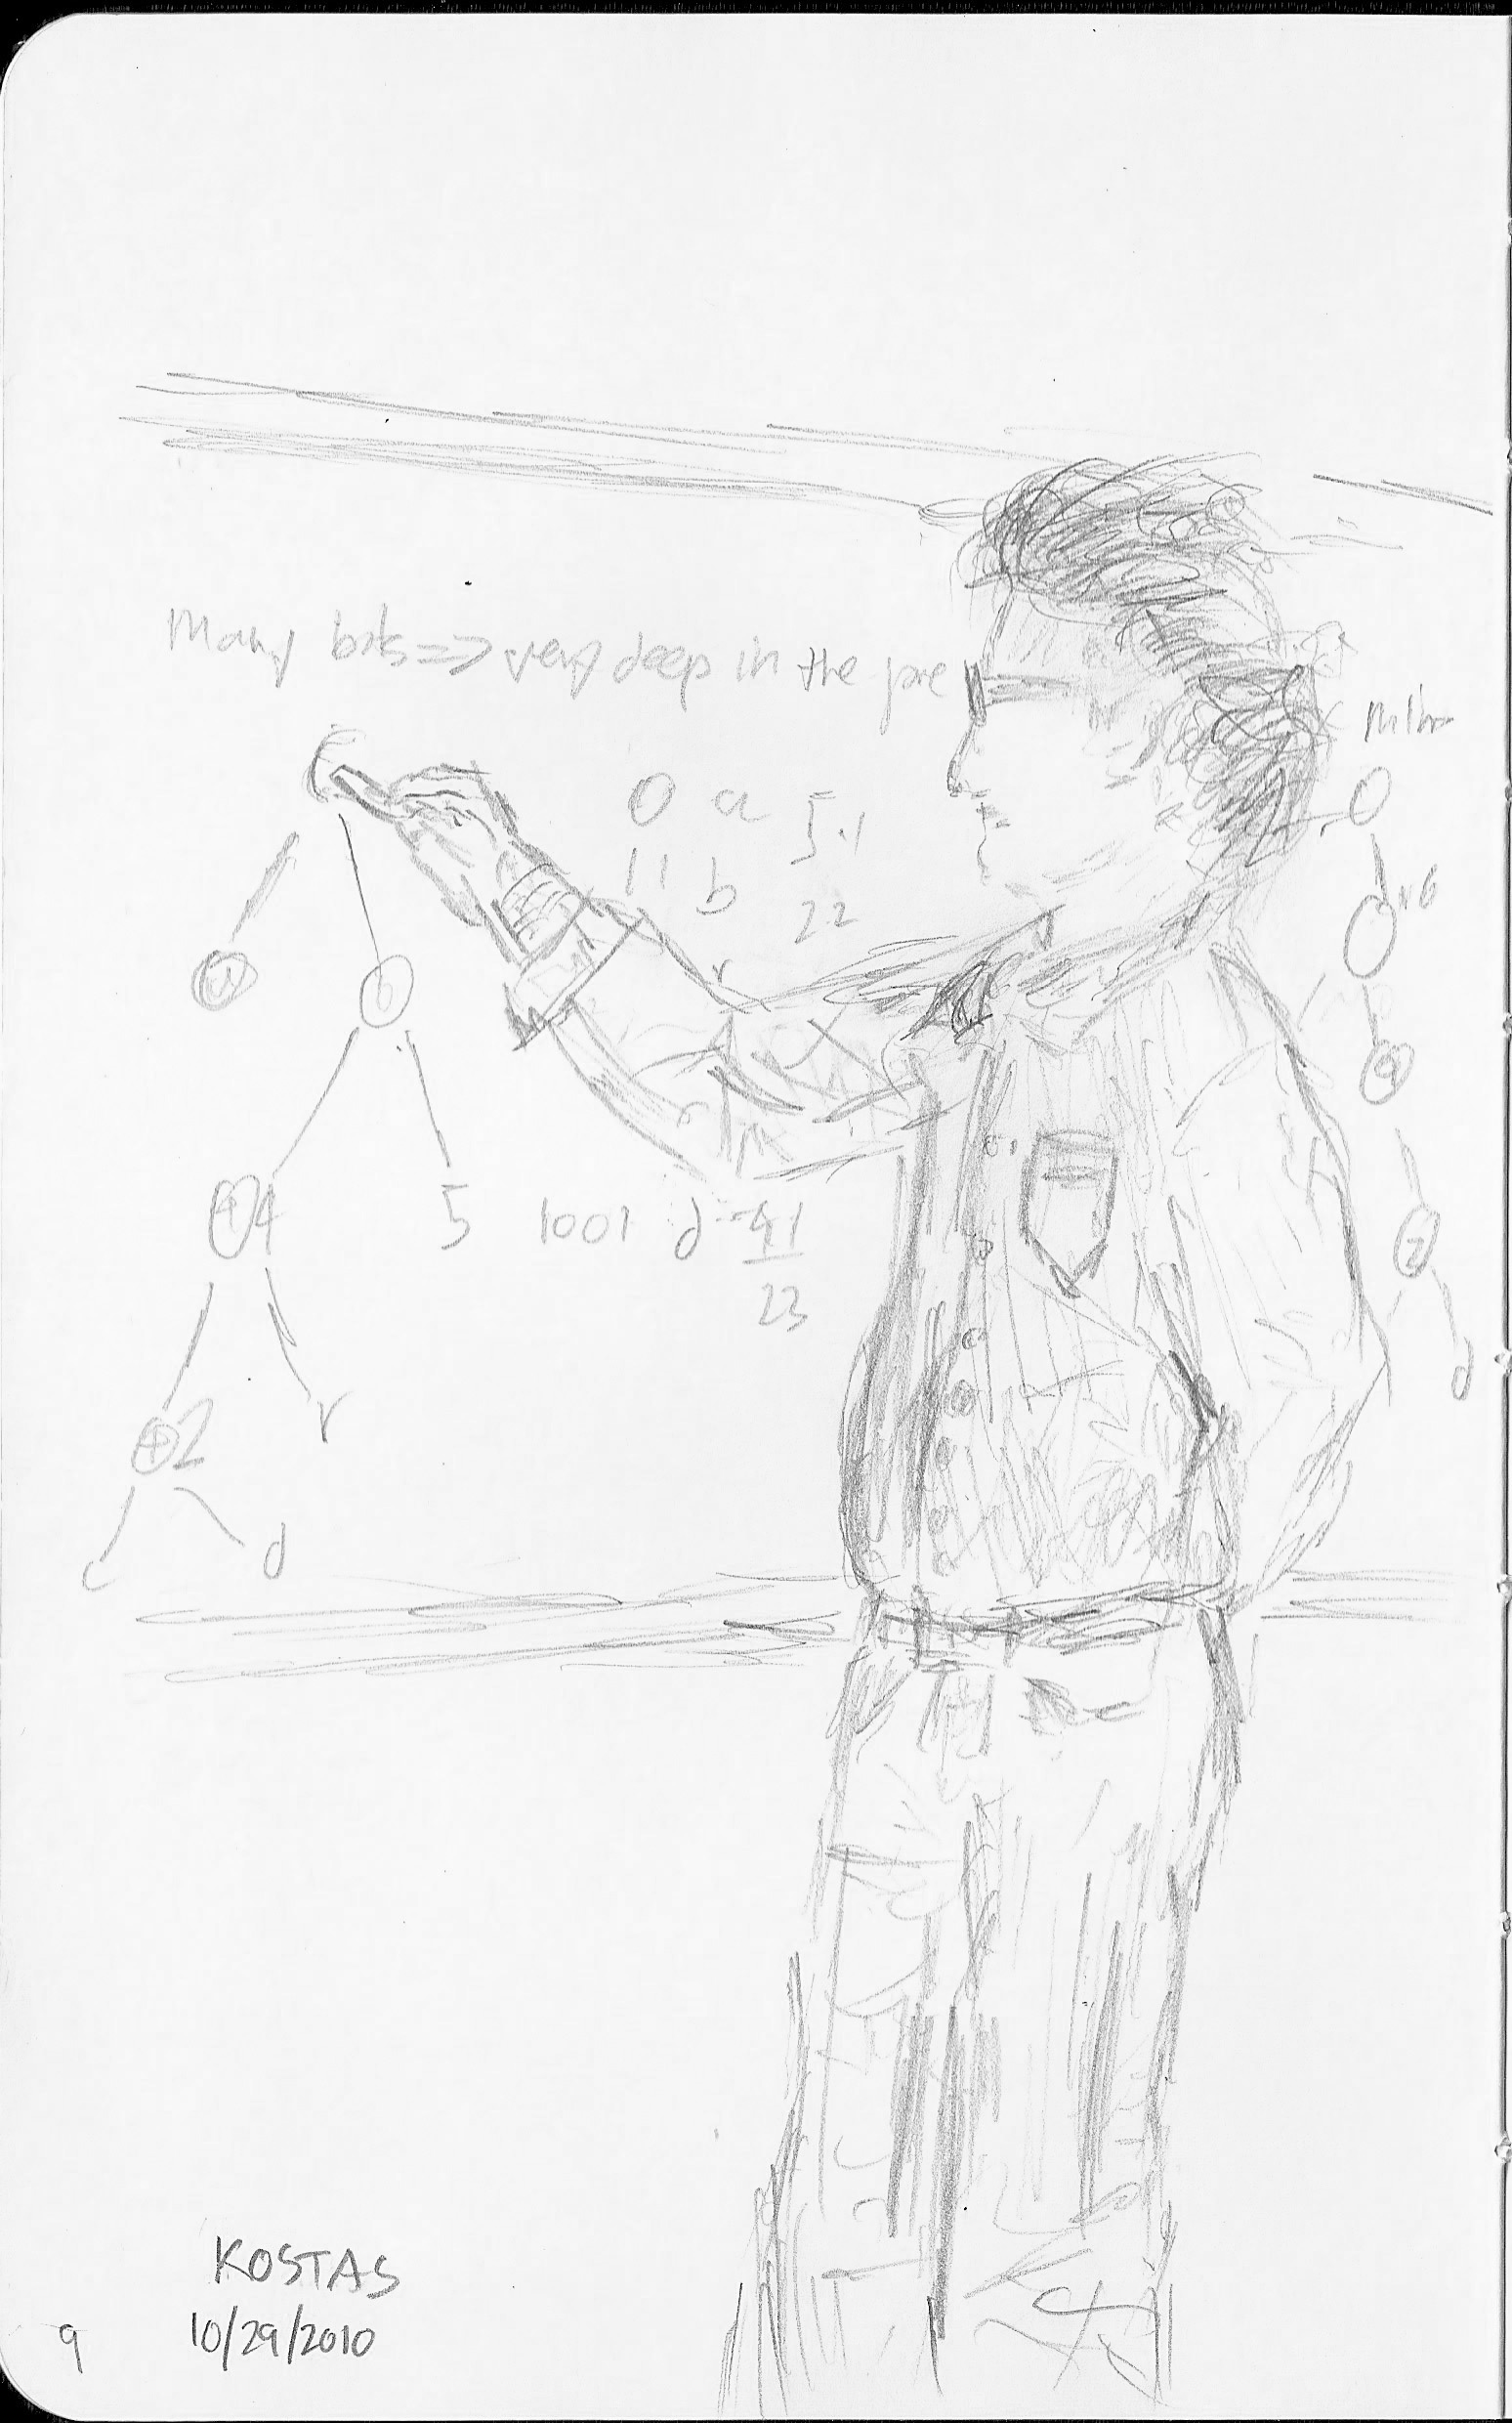 Many bits => very deep in the
0 a 5.1
11 b 22
6
4
5 1001 d 41
23
2 r
c d
d
KOSTAS
10/29/2010
9